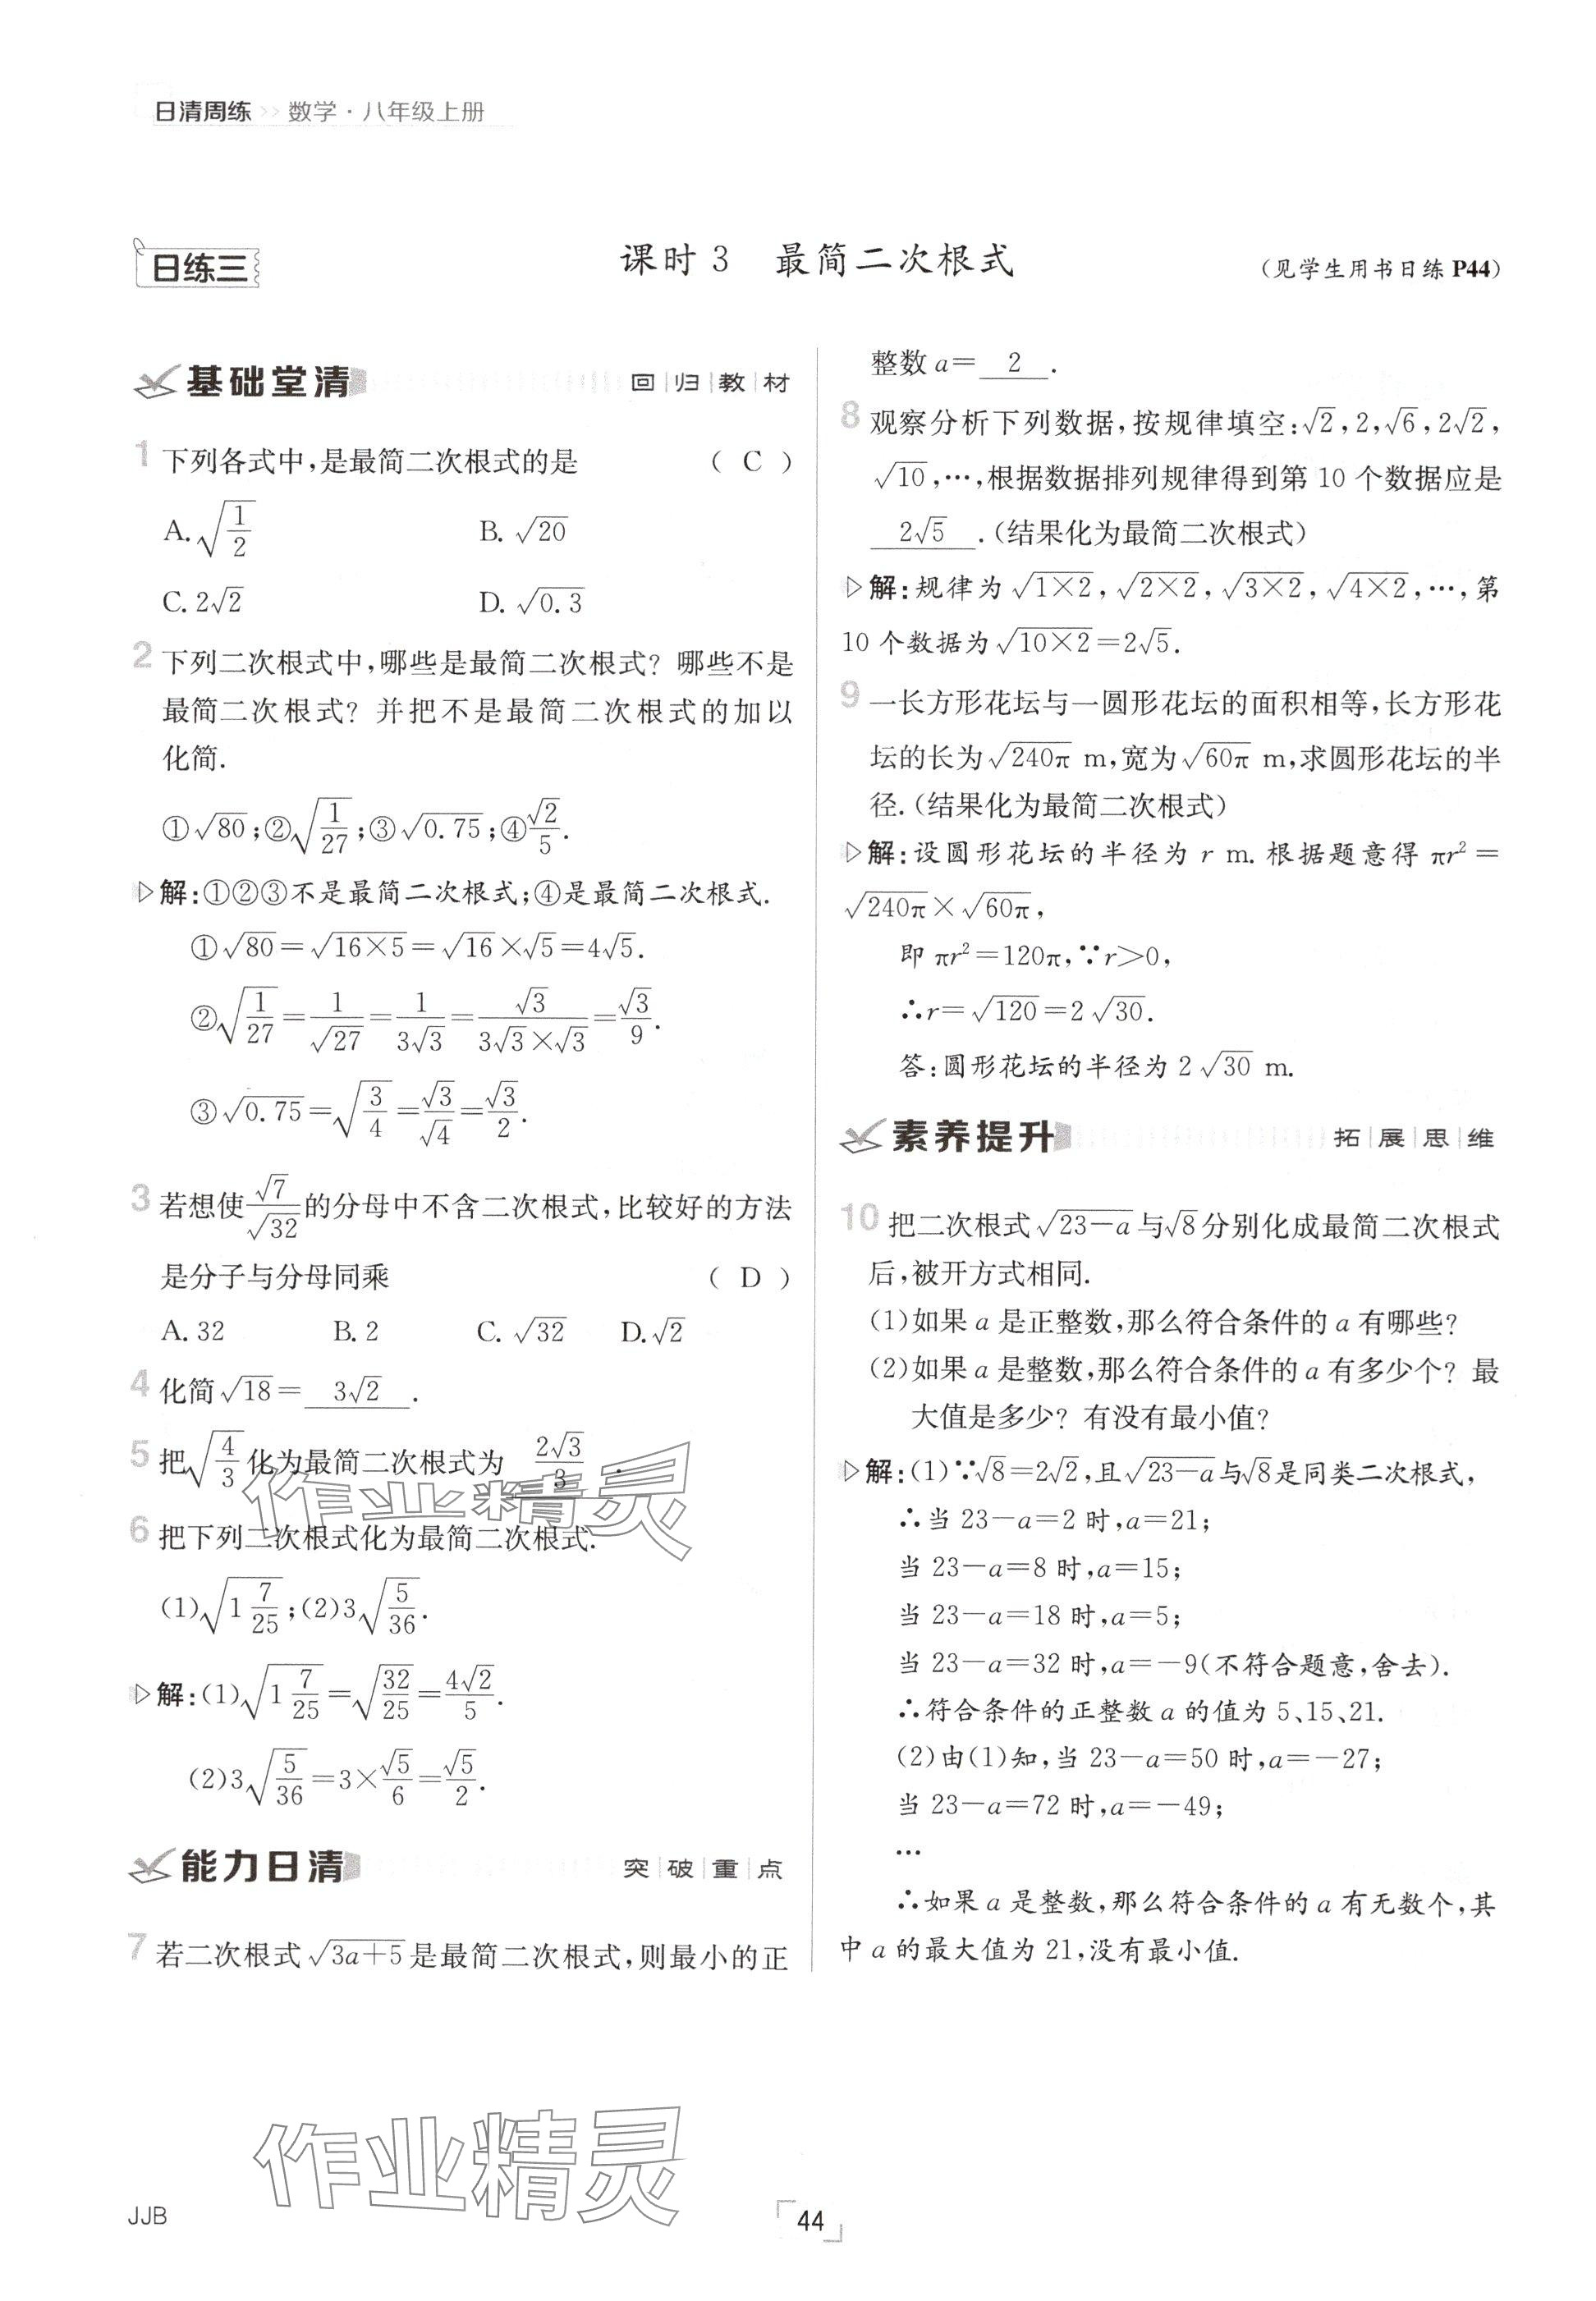 日清周练 >> 数学·八年级上册
日练三
课时 3 最简二次根式
(见学生用书日练 P44)
基础堂清
回|归|教|材
1 下列各式中,是最简二次根式的是 ( C )
A. √(1/2) B. √20
C. 2√2 D. √0.3
2 下列二次根式中,哪些是最简二次根式? 哪些不是
最简二次根式? 并把不是最简二次根式的加以
化简.
①√80;②√(1/27);③√0.75;④√2/5.
▷解:①②③不是最简二次根式;④是最简二次根式.
①√80=√(16×5)=√16×√5=4√5.
②√(1/27)=1/√27=1/(3√3)=√3/(3√3×√3)=√3/9.
③√0.75=√(3/4)=√3/√4=√3/2.
3 若想使√7/√32的分母中不含二次根式,比较好的方法
是分子与分母同乘 ( D )
A. 32 B. 2 C. √32 D. √2
4 化简√18= 3√2 .
5 把√(4/3)化为最简二次根式为 2√3/3 .
6 把下列二次根式化为最简二次根式.
(1)√(1 7/25);(2)3√(5/36).
▷解:(1)√(1 7/25)=√(32/25)=4√2/5.
(2)3√(5/36)=3×√5/6=√5/2.
能力日清
突|破|重|点
7 若二次根式√(3a+5)是最简二次根式,则最小的正
整数 a= 2 .
8 观察分析下列数据,按规律填空:√2,2,√6,2√2,
√10,…,根据数据排列规律得到第 10 个数据应是
2√5 .(结果化为最简二次根式)
▷解:规律为√(1×2),√(2×2),√(3×2),√(4×2),…,第
10 个数据为√(10×2)=2√5.
9 一长方形花坛与一圆形花坛的面积相等,长方形花
坛的长为√(240π) m,宽为√(60π) m,求圆形花坛的半
径.(结果化为最简二次根式)
▷解:设圆形花坛的半径为 r m. 根据题意得 πr²=
√(240π)×√(60π),
即 πr²=120π,∵r>0,
∴r=√120=2√30.
答:圆形花坛的半径为 2√30 m.
素养提升
拓|展|思|维
10 把二次根式√(23-a)与√8分别化成最简二次根式
后,被开方式相同.
(1)如果 a 是正整数,那么符合条件的 a 有哪些?
(2)如果 a 是整数,那么符合条件的 a 有多少个? 最
大值是多少? 有没有最小值?
▷解:(1)∵√8=2√2,且√(23-a)与√8是同类二次根式,
∴当 23-a=2 时,a=21;
当 23-a=8 时,a=15;
当 23-a=18 时,a=5;
当 23-a=32 时,a=-9(不符合题意,舍去).
∴符合条件的正整数 a 的值为 5、15、21.
(2)由(1)知,当 23-a=50 时,a=-27;
当 23-a=72 时,a=-49;
…
∴如果 a 是整数,那么符合条件的 a 有无数个,其
中 a 的最大值为 21,没有最小值.
作业精灵
作业精灵
JJB
44